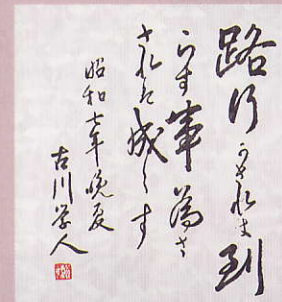 路行かされは到
らす事為さ
されは成らす
昭和七年晩夏
古川学人